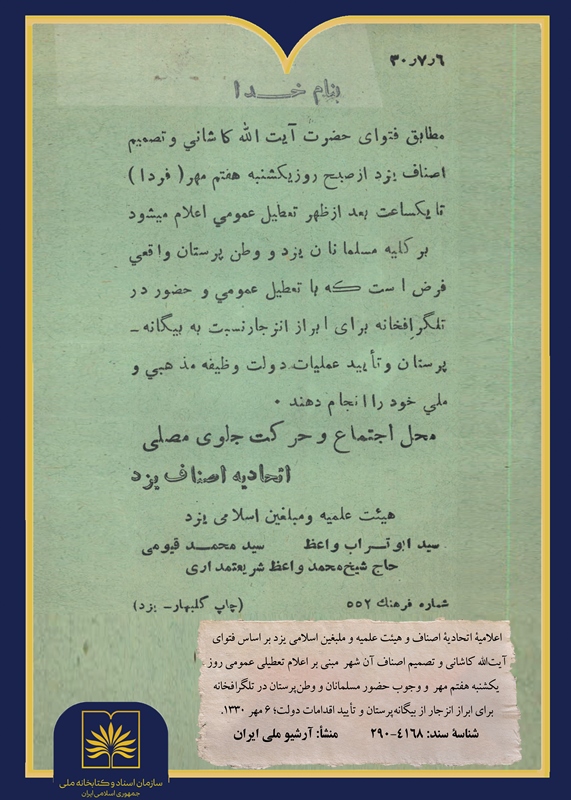 ۳۰٫۷٫۶
بنام خــدا
مطابق فتوای حضرت آیت الله کاشاني و تصمیم
اصناف یزد از صبح روز یکشنبه هفتم مهر ( فردا )
تا یکساعت بعد از ظهر تعطیل عمومي اعلام میشود
بر کلیه مسلمانان یزد و وطن پرستان واقعي
فرض است که با تعطیل عمومي و حضور در
تلگرافخانه برای ابراز انزجار نسبت به بیگانه ـ
پرستان و تأیید عملیات دولت وظیفه مذهبي و
ملي خود را انجام دهند ٠
محل اجتماع و حرکت جلوی مصلی
اتحادیه اصناف یزد
هیئت علمیه و مبلغین اسلامی یزد
سید ابوتــراب واعظ سید محمــد قیومی
حاج شیخ محمد واعظ شریعتمداری
شماره فرهنك ۵۵۲ (چاپ گلبهار ـ یزد)
اعلامیهٔ اتحادیهٔ اصناف و هیئت علمیه و ملبغین اسلامی یزد بر اساس فتوای
آیت‌الله کاشانی و تصمیم اصناف آن شهر مبنی بر اعلام تعطیلی عمومی روز
یکشنبه هفتم مهر و وجوب حضور مسلمانان و وطن‌پرستان در تلگرافخانه
برای ابراز انزجار از بیگانه‌پرستان و تأیید اقدامات دولت؛ ۶ مهر ۱۳۳۰.
شناسهٔ سند: ۴۱۶۸-۲۹۰ منشأ: آرشیو ملی ایران
سازمان اسناد و کتابخانه ملی
جمهوری اسلامی ایران